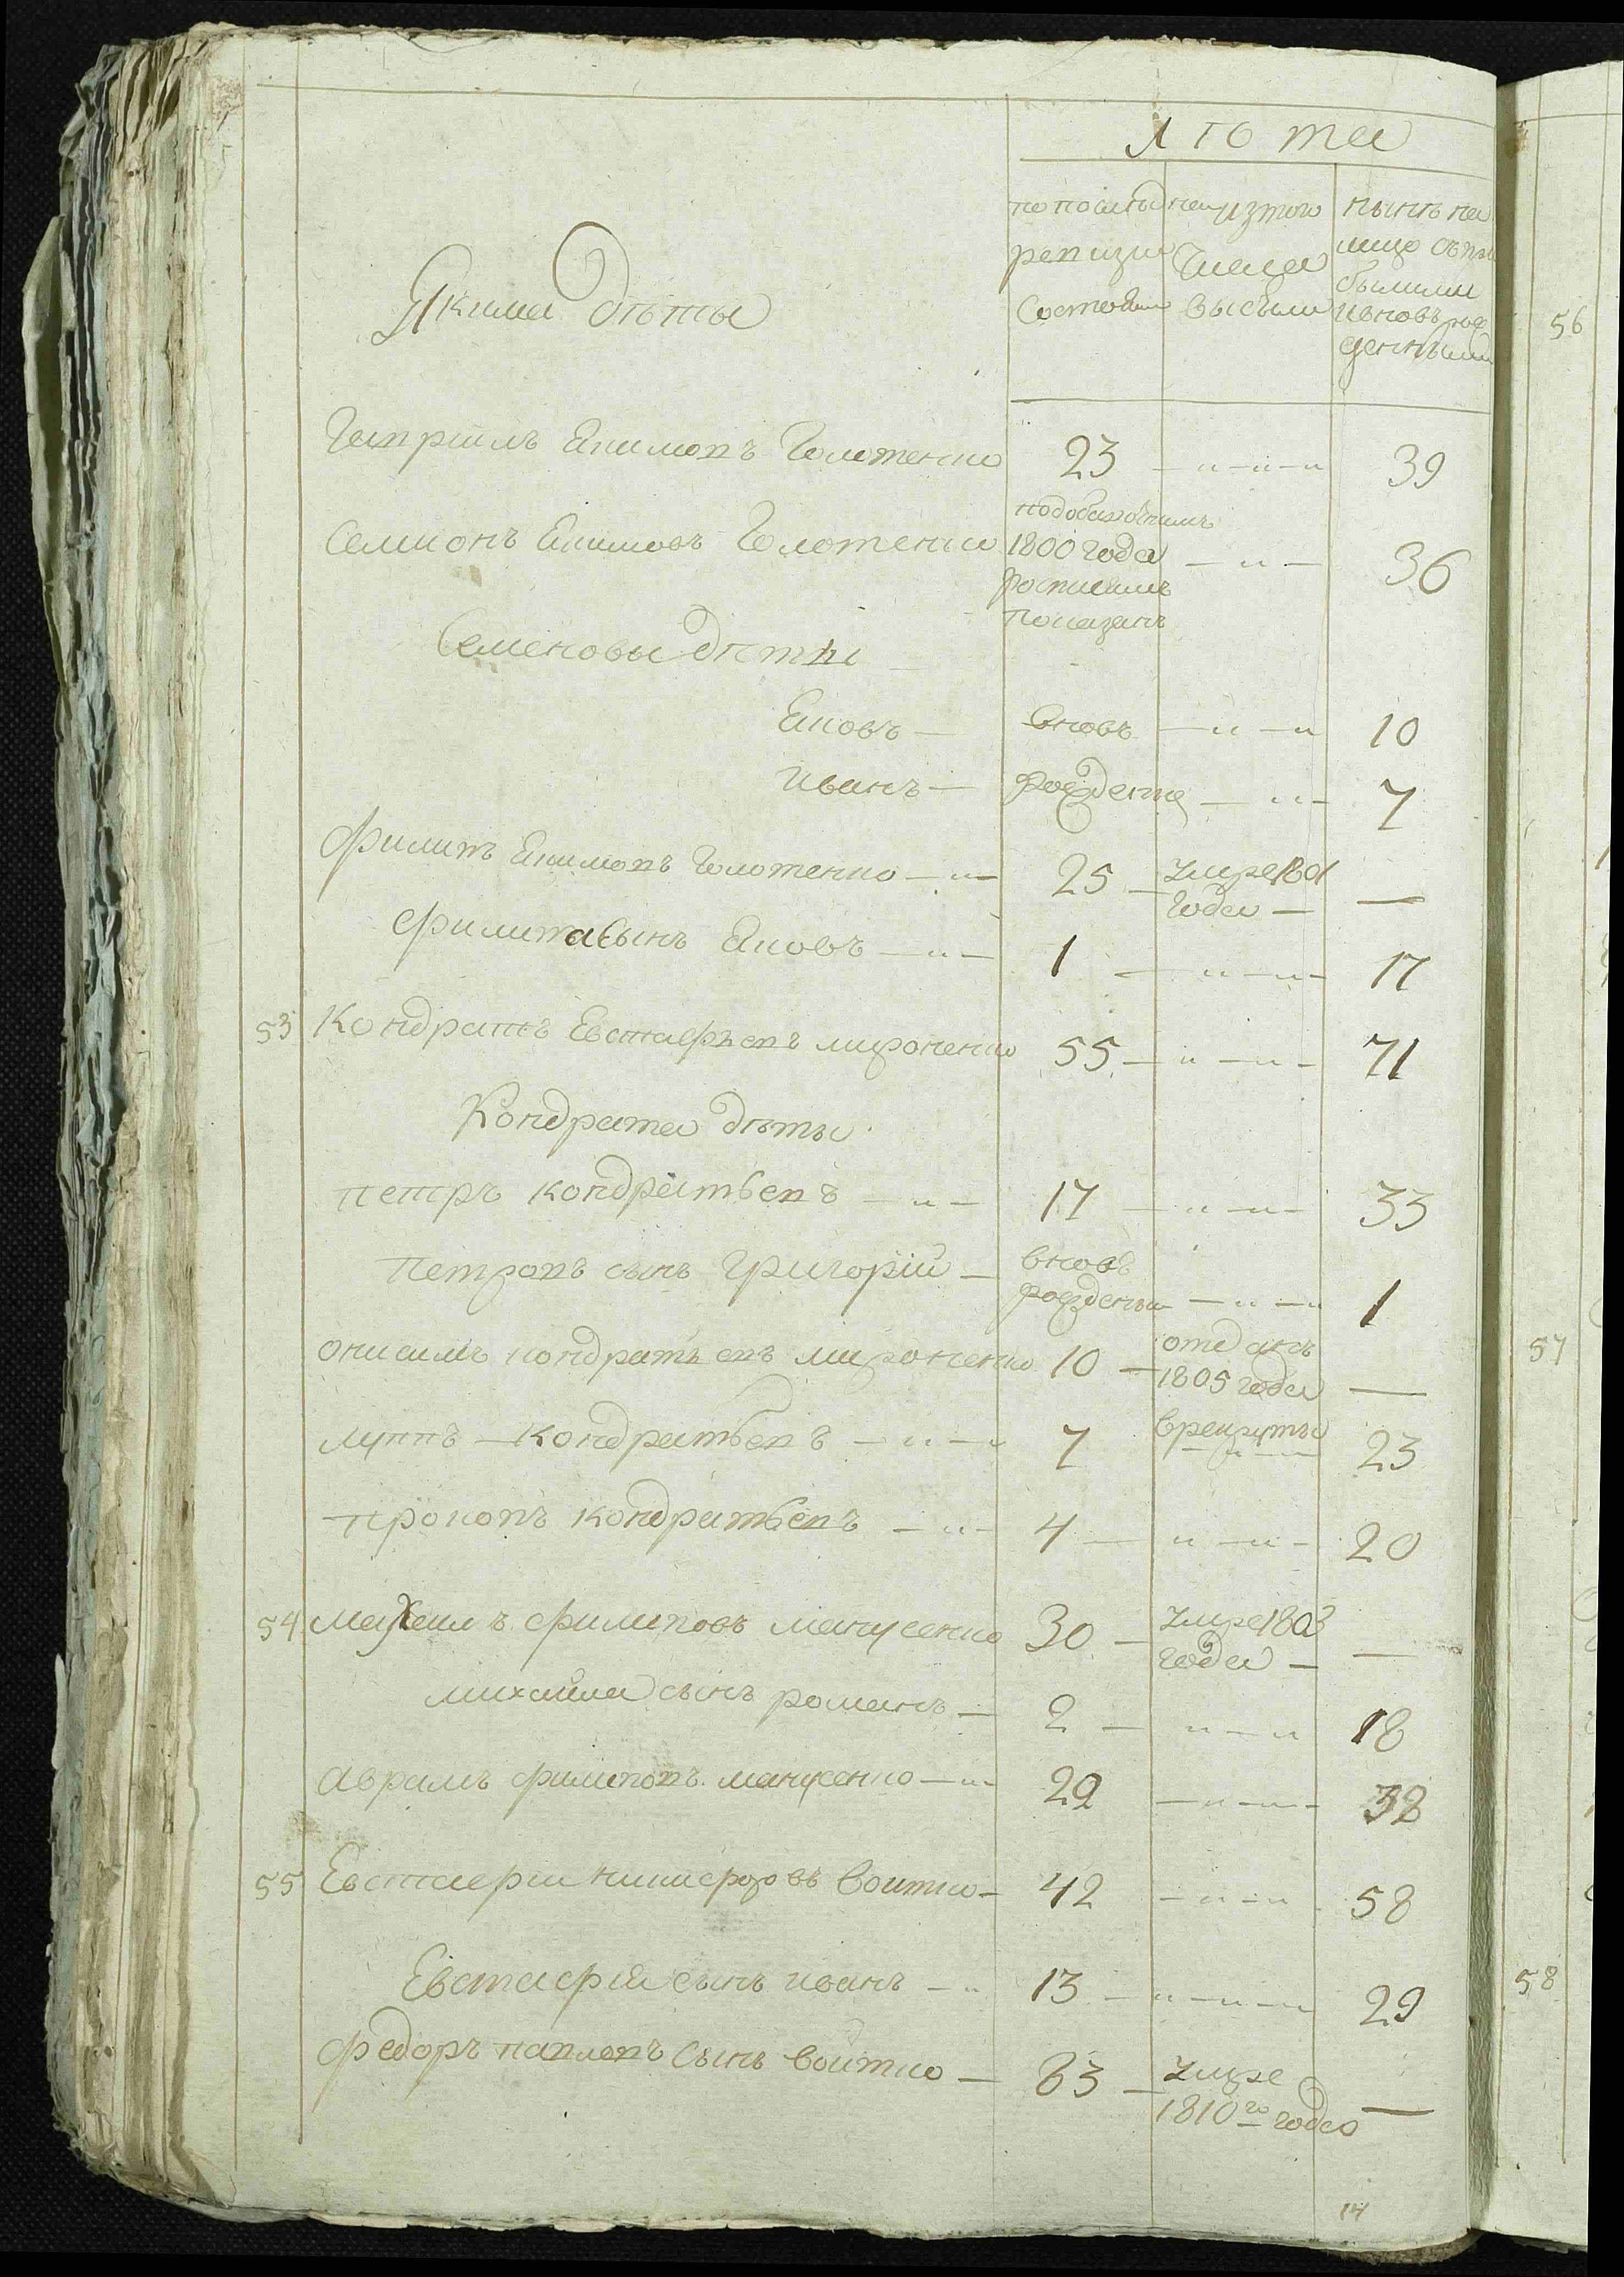 лѣта
по послѣдней
ревизии
состояли
изтого
числа
выбыли
нынѣ на
лицо съпри
былыми
ивновъ рож
денными
Якима дѣти
Гавріилъ Якимовъ Голотенко 23 — „ — „ — „ 39
Семионъ Якимовъ Голотенко
1800 года — „ — 36
показанъ
Семеновы дѣти
Яковъ — вновь — „ — „ 10
Иванъ — рожденые — „ — 7
Филипъ Якимовъ Голотенко — „ — 25 — умре 1801
года — —
Филипа сынъ Яковъ — „ — 1 — „ — „ — 17
53 Кондратъ Евстафьевъ мироненко 55 — „ — „ — 71
Кондрата дѣти
петръ кондратьевъ — „ — 17 — „ — „ — 33
Петровъ сынъ Григорій — вновь
рожденый — „ — „ 1
онисимъ кондратьевъ мироненко 10 — отданъ
1805 года —
врекруты
луппъ — кондратьевъ — „ — „ 7 — „ — 23
прокопъ кондратьевъ — „ — 4 — „ — „ — 20
54 Михаилъ филиповъ манусенко 30 — умре 1803
года — —
михайла сынъ романъ — 2 — „ — „ 18
аврамъ филиповъ манусенко — „ — 22 — „ — „ — 38
55 Евстафій никифоровъ воитко — 42 — „ — „ 58
Евстафія сынъ иванъ — „ 13 — „ — „ — „ 29
федоръ павловъ сынъ воитко — 63 — умре
1810го года —
14
56
57
58